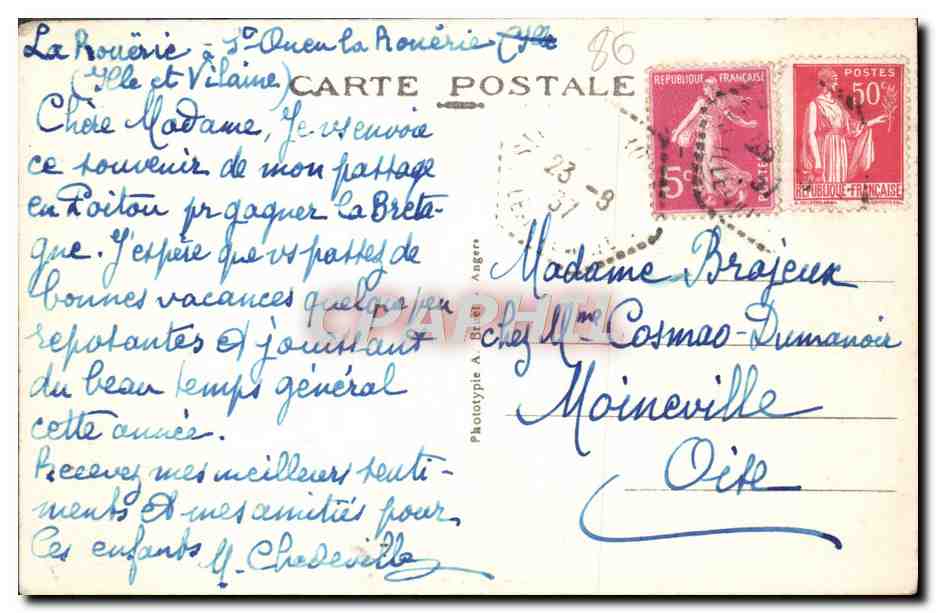 La Rouërie - St Ouen la Rouërie (Ille
(Ille et Vilaine)
86
CARTE POSTALE
Chère Madame, Je vs envoie
ce souvenir de mon passage
en Poitou pr gagner la Breta-
gne. J'espère que vs passez de
bonnes vacances quelque peu
reposantes et jouissant
du beau temps général
cette année.
Recevez mes meilleurs senti-
ments et mes amitiés pour
les enfants M. Chedeville
REPUBLIQUE FRANÇAISE
5c
POSTES
50c
REPUBLIQUE FRANÇAISE
23 - 9
37
Phototypie A. Bruel - Angers
Madame Brajeux
chez Mme Cosmao-Dumanoir
Moineville
Oise
CPAPHIL